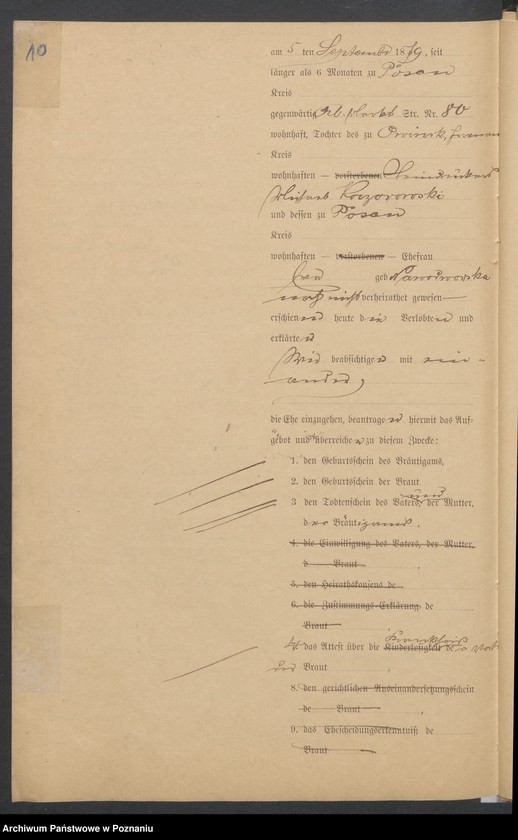 10
am 5 ten September 1879, seit
länger als 6 Monaten zu Posen
Kreis
gegenwärtig Str. Nr. 80
wohnhaft, Tochter des zu
Kreis
wohnhaften — verstorbenen
und dessen zu Posen
Kreis
wohnhaften — verstorbenen — Ehefrau
Eva geb
noch nicht verheirathet gewesen
erschienen heute die Verlobten und
erklärten
Wir beabsichtigen mit ein-
ander,
die Ehe einzugehen, beantragen hiermit das Auf-
gebot und überreichen zu diesem Zwecke:
1. den Geburtsschein des Bräutigams,
2. den Geburtsschein der Braut
3 den Todtenschein des Vaters, und der Mutter,
des Bräutigams.
4. die Einwilligung des Vaters, der Mutter,
d Braut
5. den Heirathskonsens de
6. die Zustimmungs-Erklärung de
Braut
das Attest über die Kinderlosigkeit de
Braut
8. den gerichtlichen Auseinandersetzungsschein
de Braut
9. das Ehescheidungserkenntniß de
Braut
Archiwum Państwowe w Poznaniu